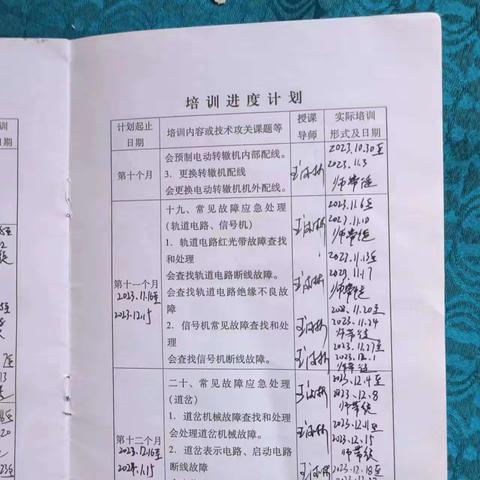 培训进度计划
计划起止
日期
培训内容或技术攻关课题等
授课
导师
实际培训
形式及日期
第十个月
会预制电动转辙机内部配线。
3. 更换转辙机配线
会更换电动转辙机机外配线。
2023.10.30至
2023.11.3
师带徒
第十一个月
2023.11.16至
2023.12.15
十九、常见故障应急处理
(轨道电路、信号机)
1. 轨道电路红光带故障查找
和处理
会查找轨道电路断线故障。
会查找轨道电路绝缘不良故
障
2. 信号机常见故障查找和处
理
会查找信号机断线故障。
2023.11.6至
2023.11.10
师带徒
2023.11.13至
2023.11.17
师带徒
2023.11.20至
2023.11.24
师带徒
2023.11.27至
2023.12.1
师带徒
第十二个月
2023.12.16至
2024.1.15
二十、常见故障应急处理
(道岔)
1. 道岔机械故障查找和处理
会处理道岔机械故障。
2. 道岔表示电路、启动电路
断线故障
2023.12.4至
2023.12.8
师带徒
2023.12.11至
2023.12.15
师带徒
2023.12.18至
训
日期